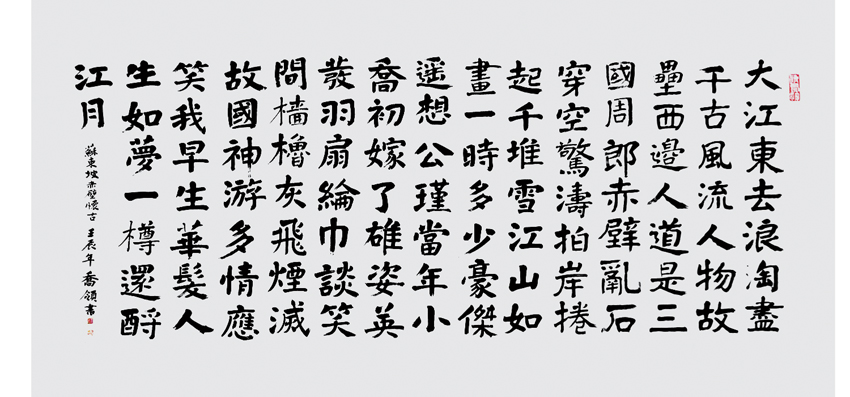 大江東去浪淘盡
千古風流人物故
壘西邊人道是三
國周郎赤壁亂石
穿空驚濤拍岸捲
起千堆雪江山如
畫一時多少豪傑
遥想公瑾當年小
喬初嫁了雄姿英
發羽扇綸巾談笑
間檣櫓灰飛煙滅
故國神游多情應
笑我早生華髮人
生如夢一樽還酹
江月
蘇東坡赤壁懷古 壬辰年喬領書